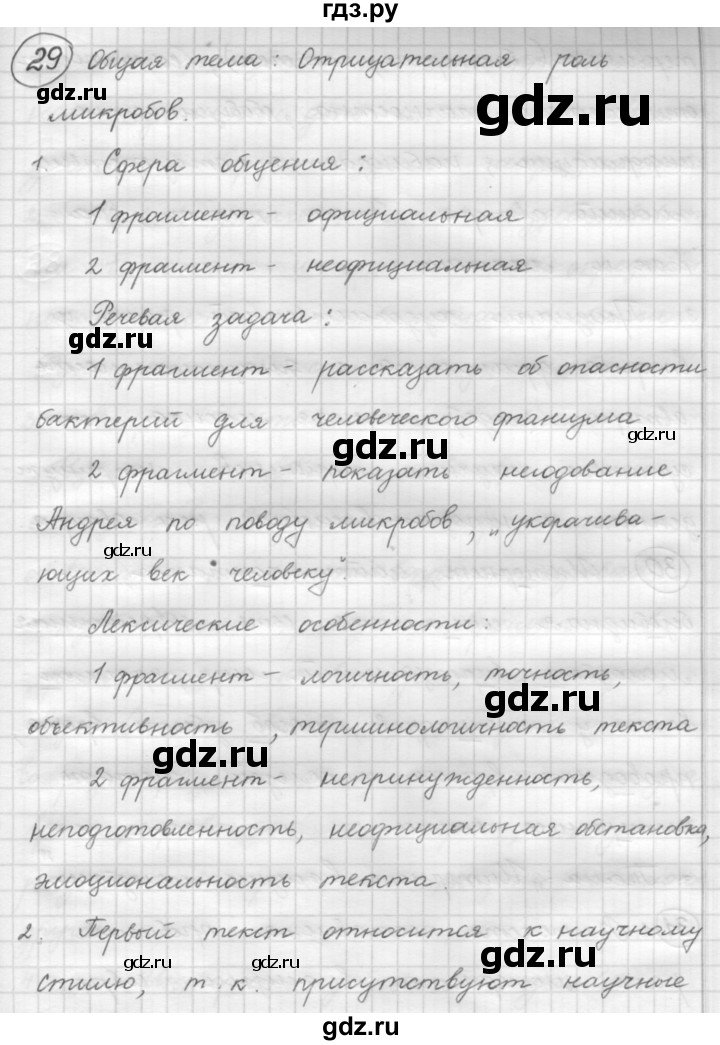 гдз.ру
29 Общая тема: Отрицательная роль
микробов.
1. Сфера общения:
1 фрагмент - официальная
2 фрагмент - неофициальная
Речевая задача:
1 фрагмент - рассказать об опасности
бактерий для человеческого фганизма
2 фрагмент - показать негодование
Андрея по поводу микробов, „укорачива-
ющих век " человеку".
Лексические особенности:
1 фрагмент - логичность, точность,
объективность, терминологичность текста
2 фрагмент - непринужденность,
неподготовленность, неофициальная обстановка,
эмоциональность текста.
2. Первый текст относится к научному
стилю, т.к. присутствуют научные
gdz.ru
gdz.ru
gdz.ru
gdz.ru
gdz.ru
gdz.ru
gdz.ru
gdz.ru
gdz.ru
gdz.ru
gdz.ru
gdz.ru